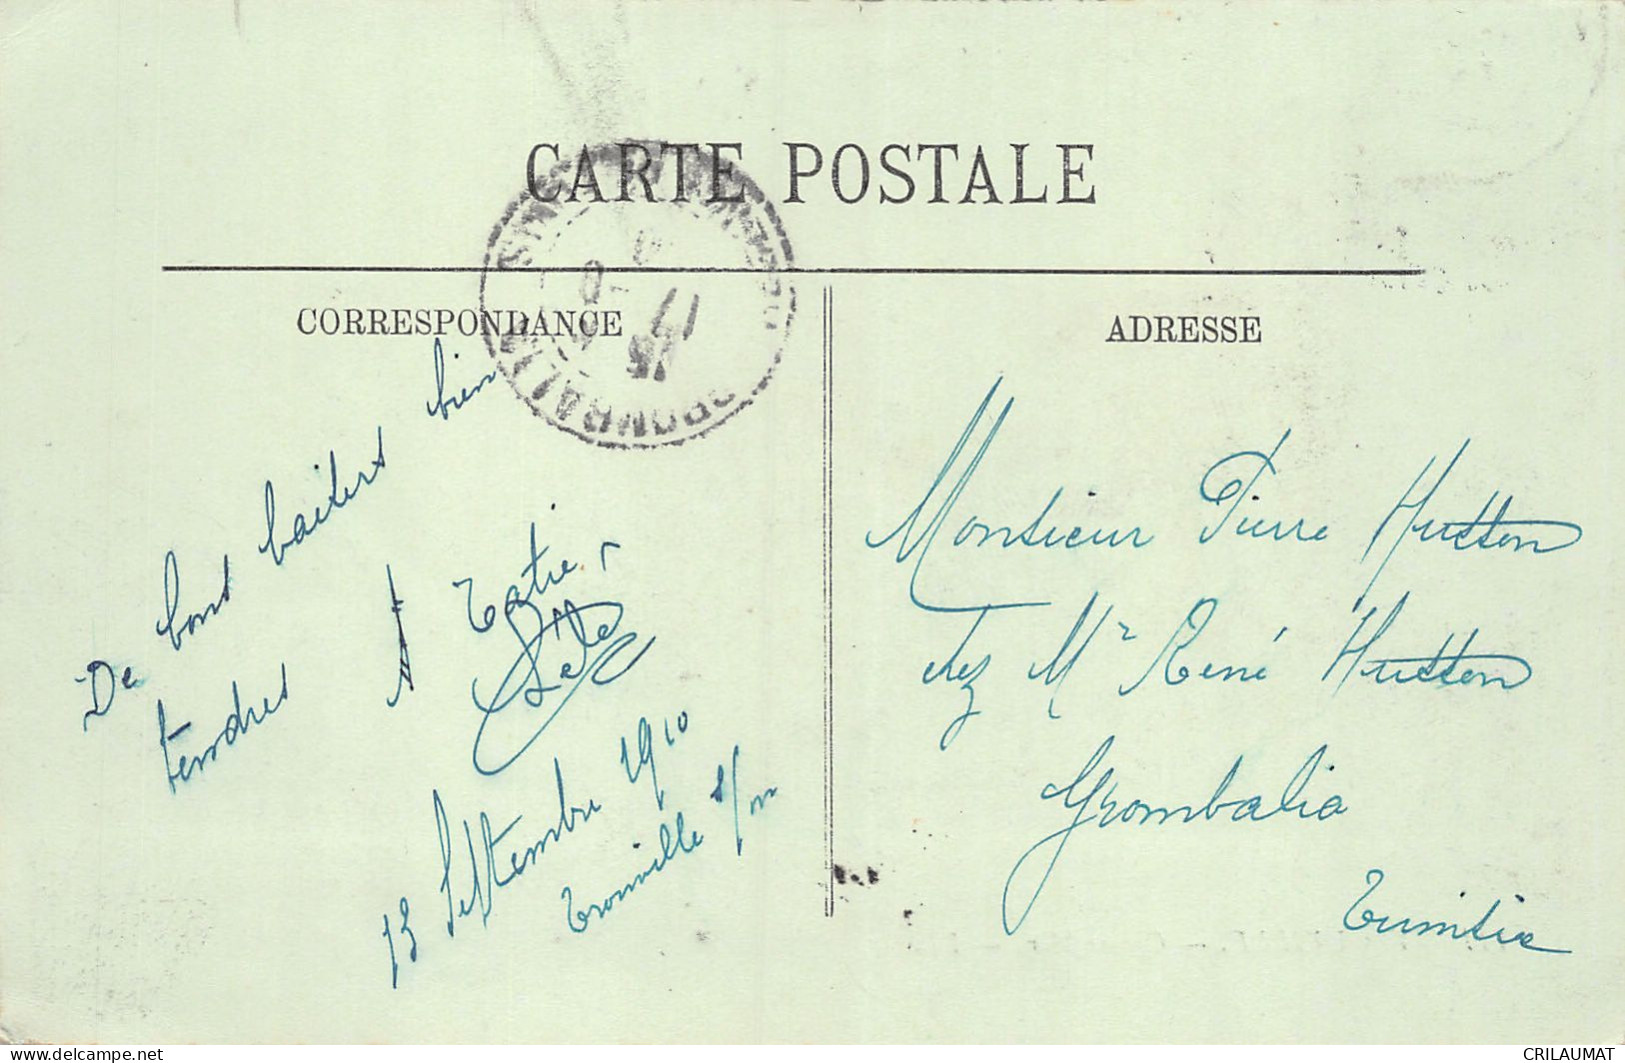 CARTE POSTALE
CORRESPONDANCE
ADRESSE
De bons baisers bien
tendres
13 Septembre 1910
Trouville s/m
Monsieur Pierre Hutton
chez Mr René Hutton
Grombalia
Tunisie
GROMBALIA
17
15
www.delcampe.net
CRILAUMAT